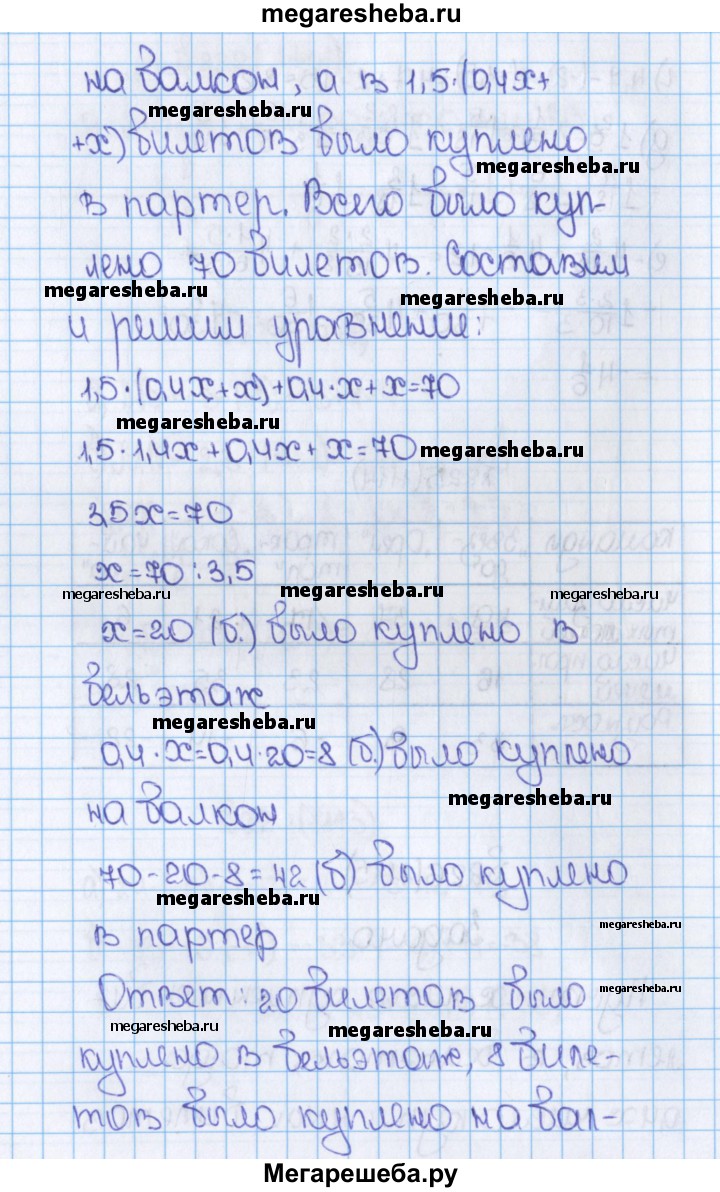 megaresheba.ru
на балкон, а в 1,5·(0,4х+
megaresheba.ru
+х) билетов было куплено
megaresheba.ru
в партер. Всего было куп-
лено 70 билетов. Составим
megaresheba.ru
megaresheba.ru
и решим уравнение:
1,5·(0,4х+х)+0,4·х+х=70
megaresheba.ru
1,5·1,4х+0,4х+х=70
megaresheba.ru
3,5х=70
х=70:3,5
megaresheba.ru
megaresheba.ru
megaresheba.ru
х=20 (б.) было куплено в
бельэтаж
megaresheba.ru
0,4·х=0,4·20=8 (б.) было куплено
megaresheba.ru
на балкон
70-20-8=42 (б) было куплено
megaresheba.ru
megaresheba.ru
в партер
Ответ: 20 билетов было
megaresheba.ru
megaresheba.ru
megaresheba.ru
куплено в бельэтаж, 8 биле-
тов было куплено на бал-
Мегарешеба.ру